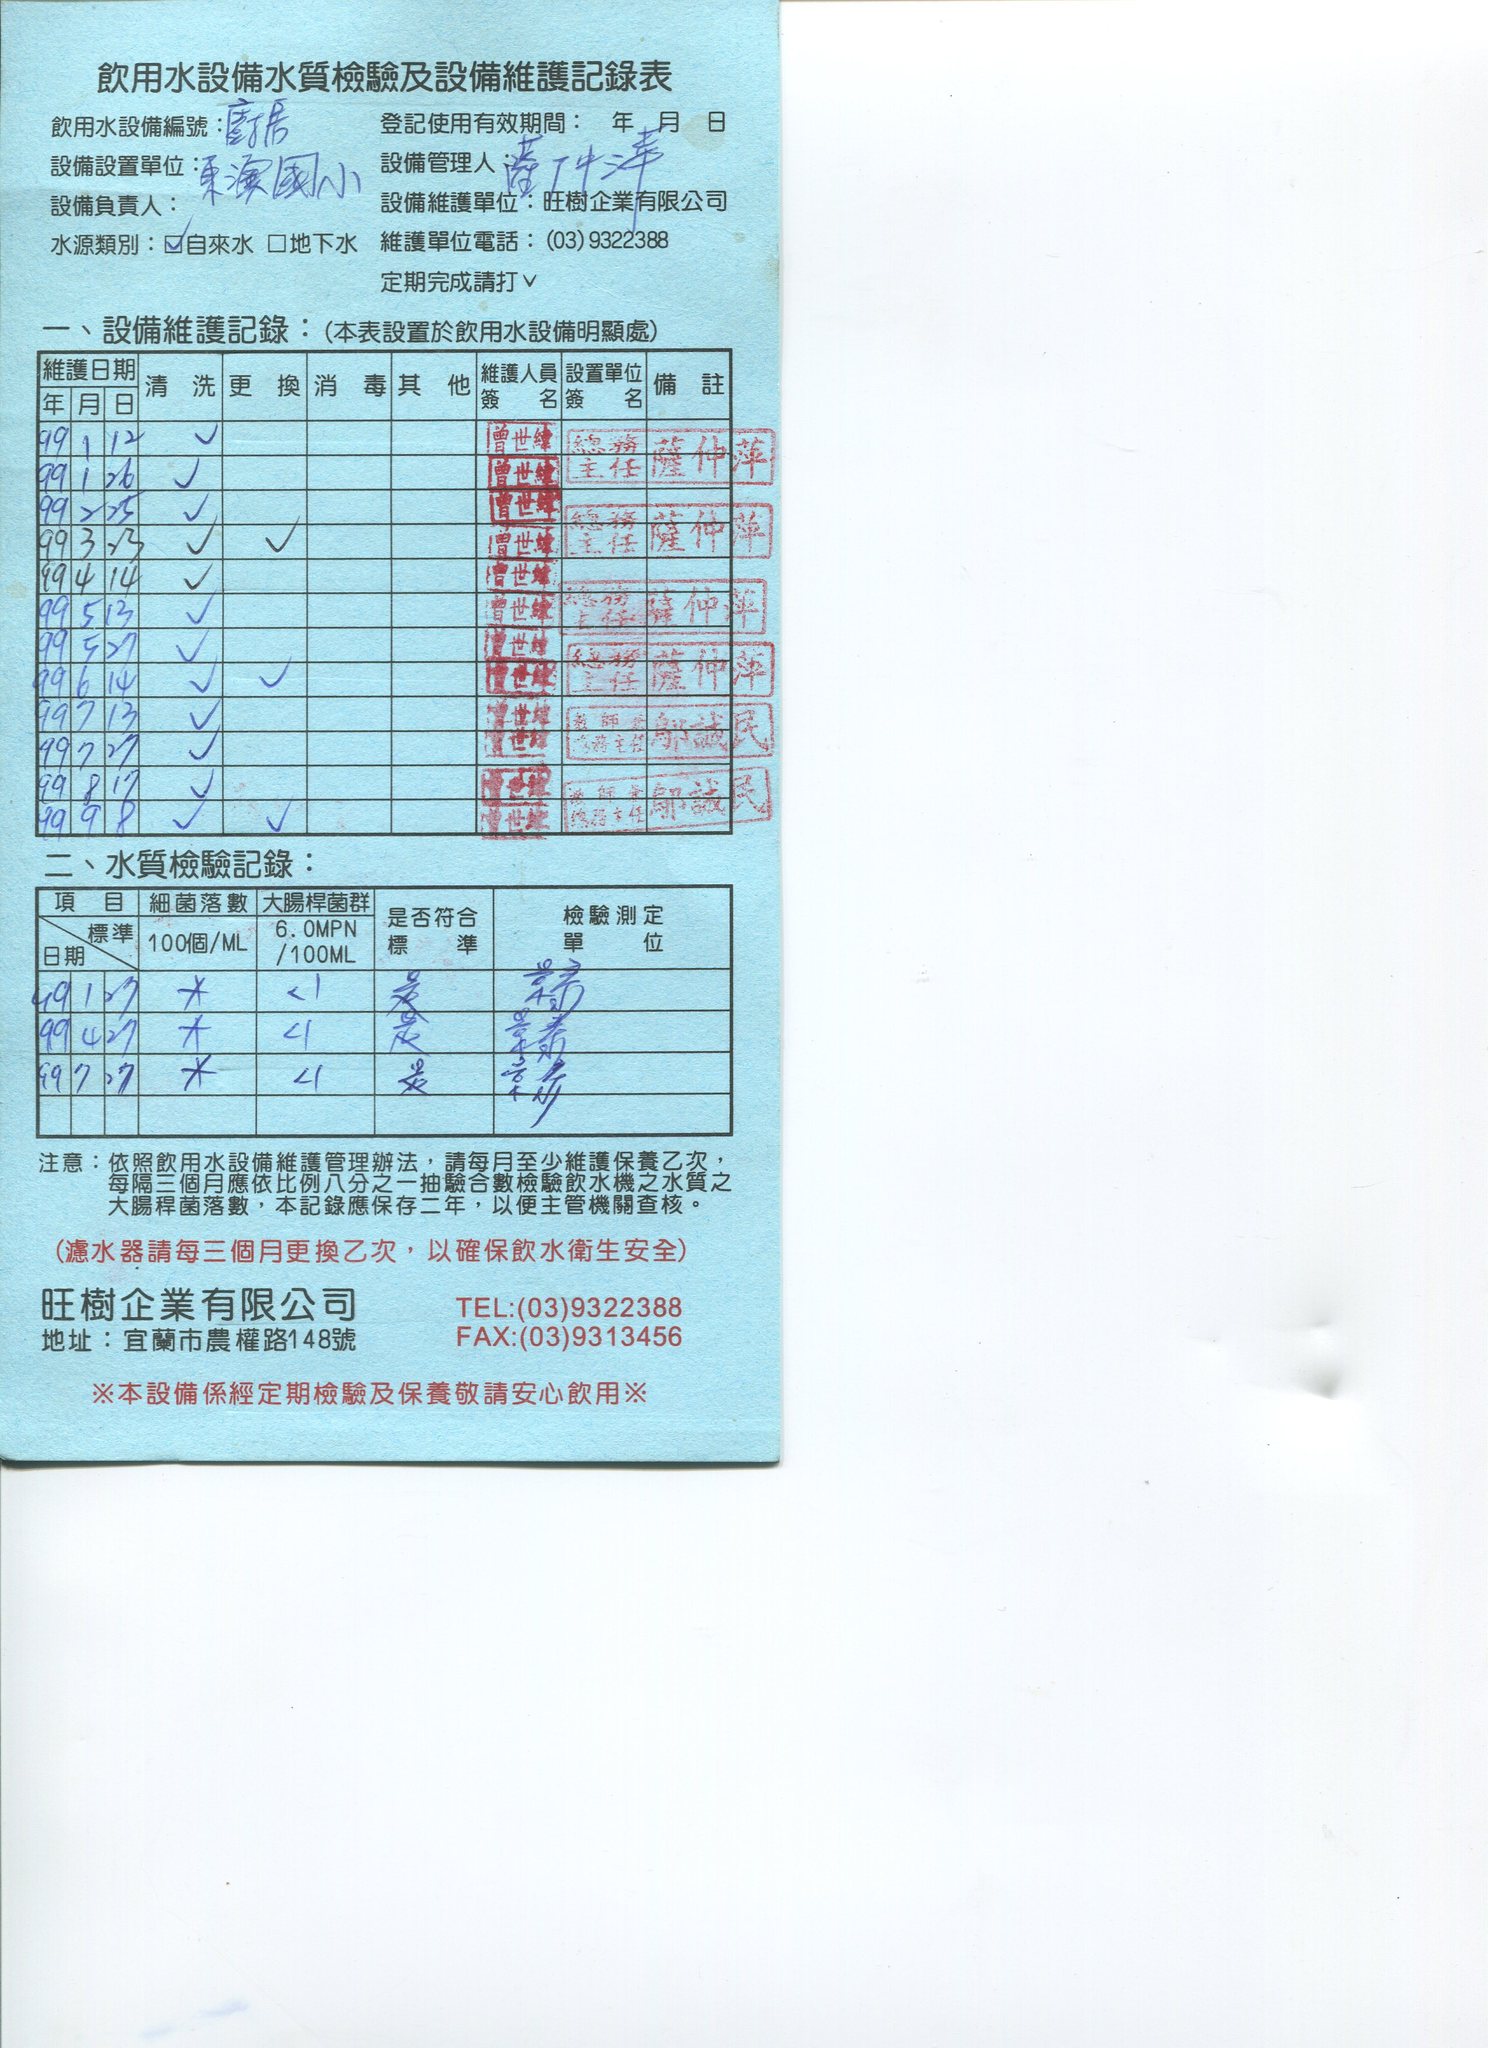 飲用水設備水質檢驗及設備維護記錄表
飲用水設備編號：廚房
登記使用有效期間： 年 月 日
設備設置單位：東澳國小
設備管理人：薩仲萍
設備負責人：
設備維護單位：旺樹企業有限公司
水源類別：☑自來水 □地下水
維護單位電話：(03)9322388
定期完成請打∨
一、設備維護記錄：(本表設置於飲用水設備明顯處)
維護日期 清洗 更換 消毒 其他 維護人員簽名 設置單位簽名 備註
年 月 日
99 1 12 ✓ 曾世緯 總務主任 薩仲萍
99 1 26 ✓ 曾世緯
99 2 25 ✓ 曾世緯
99 3 23 ✓ ✓ 曾世緯 總務主任 薩仲萍
99 4 14 ✓ 曾世緯
99 5 13 ✓ 曾世緯 總務主任 薩仲萍
99 5 27 ✓ 曾世緯
99 6 14 ✓ ✓ 曾世緯 總務主任 薩仲萍
99 7 13 ✓ 曾世緯 教師兼總務主任 鄔誠民
99 7 27 ✓ 曾世緯
99 8 17 ✓ 曾世緯 教師兼總務主任 鄔誠民
99 9 8 ✓ ✓ 曾世緯
二、水質檢驗記錄：
項目 細菌落數 大腸桿菌群 是否符合標準 檢驗測定單位
標準 100個/ML 6.0MPN/100ML
日期
99 1 27 <1 是
99 4 27 <1 是
99 7 27 <1 是
注意：依照飲用水設備維護管理辦法，請每月至少維護保養乙次，
每隔三個月應依比例八分之一抽驗合數檢驗飲水機之水質之
大腸稈菌落數，本記錄應保存二年，以便主管機關查核。
(濾水器請每三個月更換乙次，以確保飲水衛生安全)
旺樹企業有限公司
TEL:(03)9322388
地址：宜蘭市農權路148號
FAX:(03)9313456
※本設備係經定期檢驗及保養敬請安心飲用※